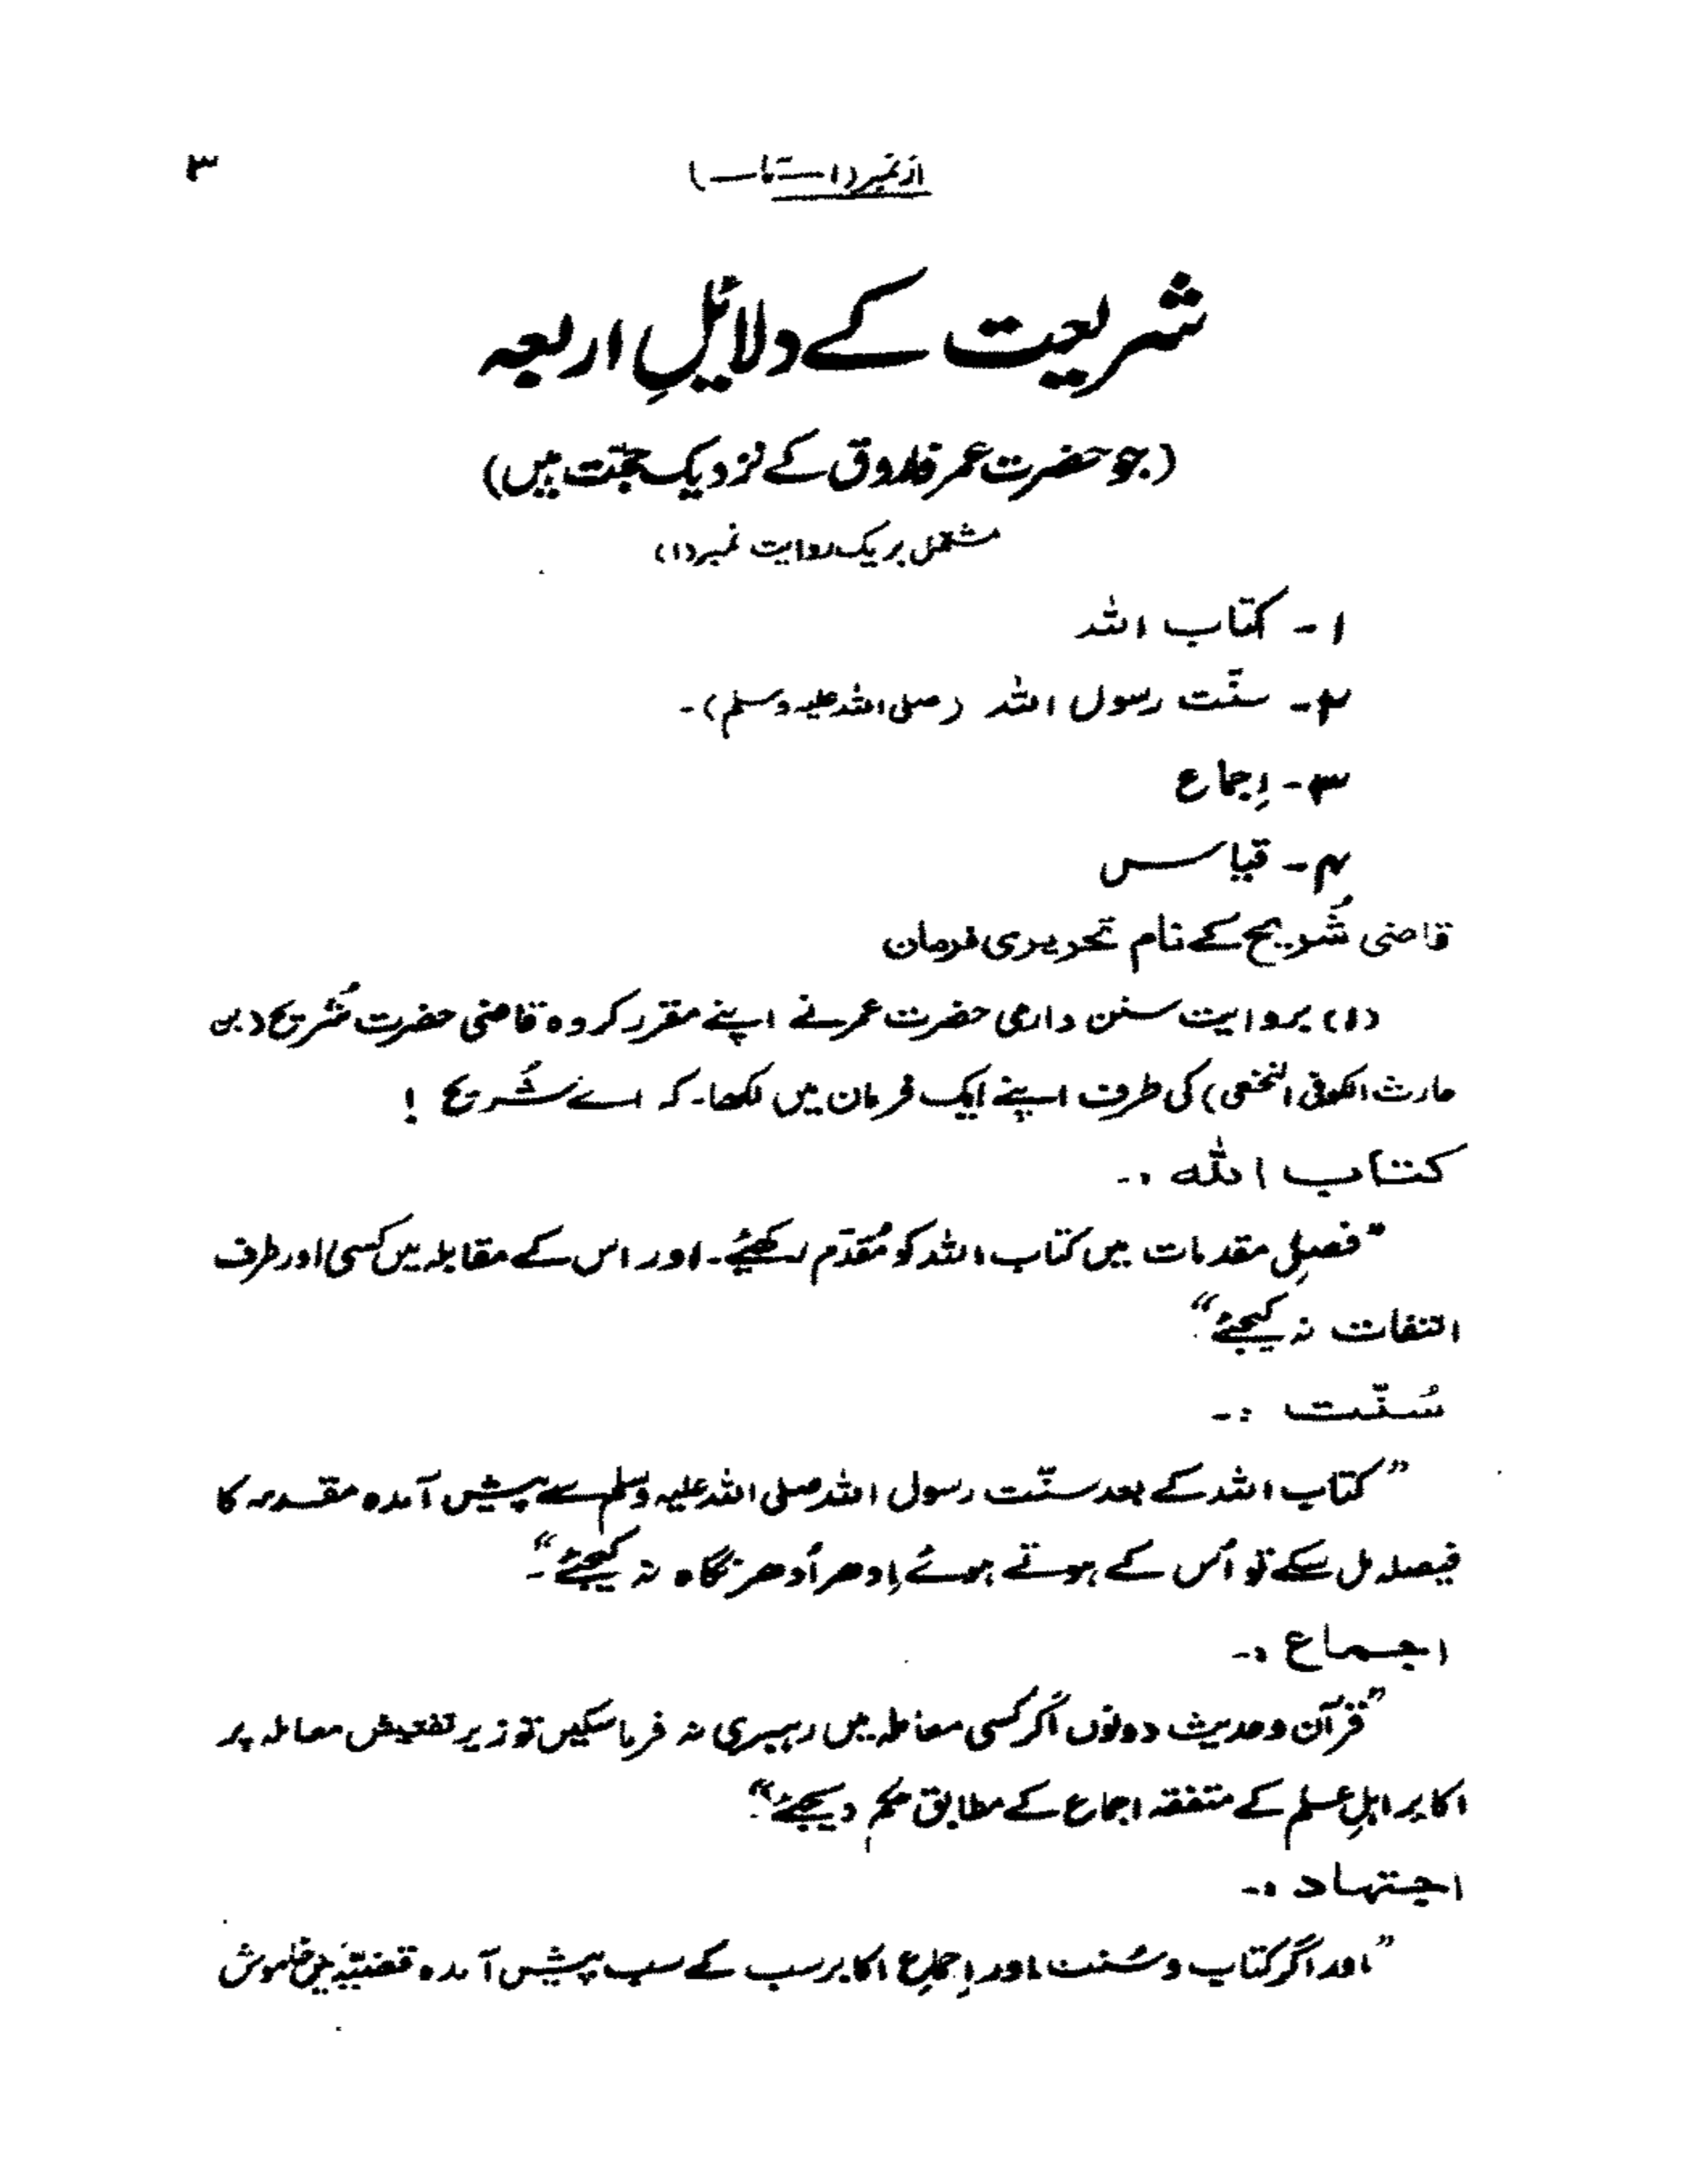 ۳
از نمبر (۱ ــتاــ)
شریعت کے دلائلِ اربعہ
(جو حضرت عمر فاروق کے نزدیک حجّت ہیں)
مشتمل بر یک روایت نمبر (۱)
۱ - کتاب اللہ
۲ - سنّت رسول اللہ (صلی اللہ علیہ وسلم) -
۳ - اِجماع
۴ - قیاس
قاضی شُریح کے نام تحریری فرمان
(۱) بروایت سنن دارمی حضرت عمر نے اپنے مقرر کردہ قاضی حضرت شُریح (بن
حارث الکوفی النخعی) کی طرف اپنے ایک فرمان میں لکھا۔ کہ اے شُریح !
کتاب اللہ :-
"فصلِ مقدمات میں کتاب اللہ کو مُقدّم رکھیئے۔ اور اس کے مقابلہ میں کسی اور طرف
التفات نہ کیجئے"
سُنّت :-
"کتاب اللہ کے بعد سنّت رسول اللہ صلی اللہ علیہ وسلم سے پیش آمدہ مقدمہ کا
فیصلہ مل سکے تو اُس کے ہوتے ہوئے اِدھر اُدھر نگاہ نہ کیجئے"۔
اجماع :-
"قرآن وحدیث دونوں اگر کسی معاملہ میں رہبری نہ فرما سکیں تو زیر تفتیش معاملہ پر
اکابر اہلِ علم کے متفقہ اجماع کے مطابق حکم دیجئے"۔
اجتہاد :-
"اور اگر کتاب و سُنت اور اِجماعِ اکابر سب کے سب پیش آمدہ قضیّہ میں خاموش